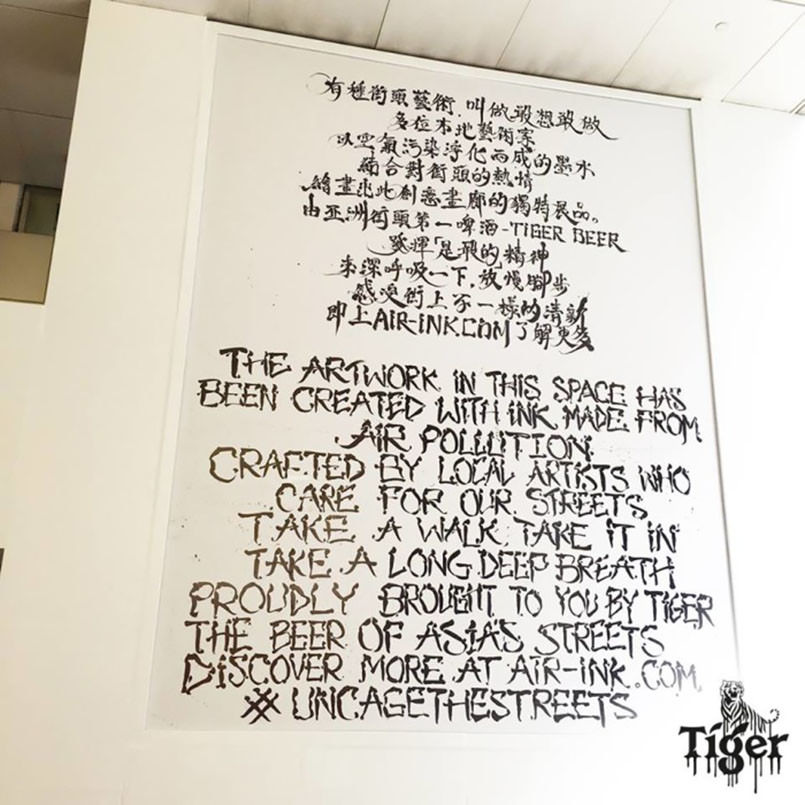 有種街頭藝術,叫做敢想敢做
多位本地藝術家
以空氣污染淨化而成的墨水
結合對街頭的熱情
繪畫出此創意畫廊的獨特展品。
由亞洲街頭第一啤酒-TIGER BEER
發揮「是飛的」精神
來深呼吸一下,放慢腳步
感受街上不一樣的清新
即上AIR-INK.COM了解更多
THE ARTWORK IN THIS SPACE HAS
BEEN CREATED WITH INK MADE FROM
AIR POLLUTION
CRAFTED BY LOCAL ARTISTS WHO
CARE FOR OUR STREETS
TAKE A WALK TAKE IT IN
TAKE A LONG DEEP BREATH
PROUDLY BROUGHT TO YOU BY TIGER
THE BEER OF ASIA'S STREETS
DISCOVER MORE AT AIR-INK.COM
# UNCAGETHESTREETS
Tiger